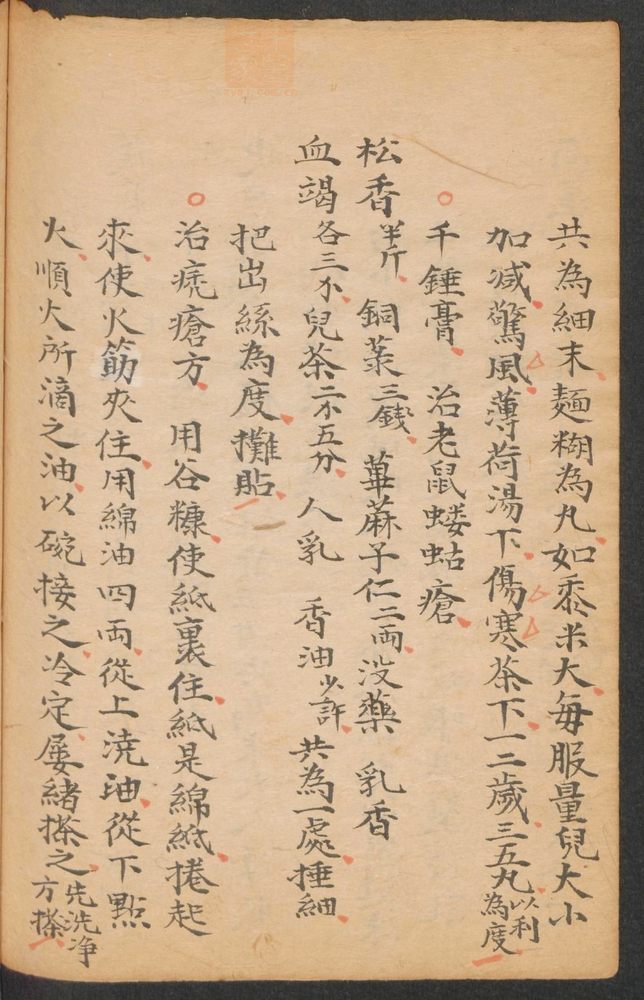 共為細末麵糊為丸如黍米大每服量兒大小
加减驚風薄荷湯下傷寒茶下一二歲三五丸以利為度
千錘膏 治老鼠蝼蛄瘡
松香半斤 銅菉三錢 萆蔴子仁二兩 没藥 乳香
血竭各三个 兒茶二个五分 人乳 香油少許 共為一處捶細
把出絲為度攤貼
治疣瘡方 用谷糠使紙裏住紙是綿紙捲起
來使火筯夾住用綿油四兩從上浇油從下點
火順火所滴之油以碗接之冷定屡緒搽之先洗净方搽